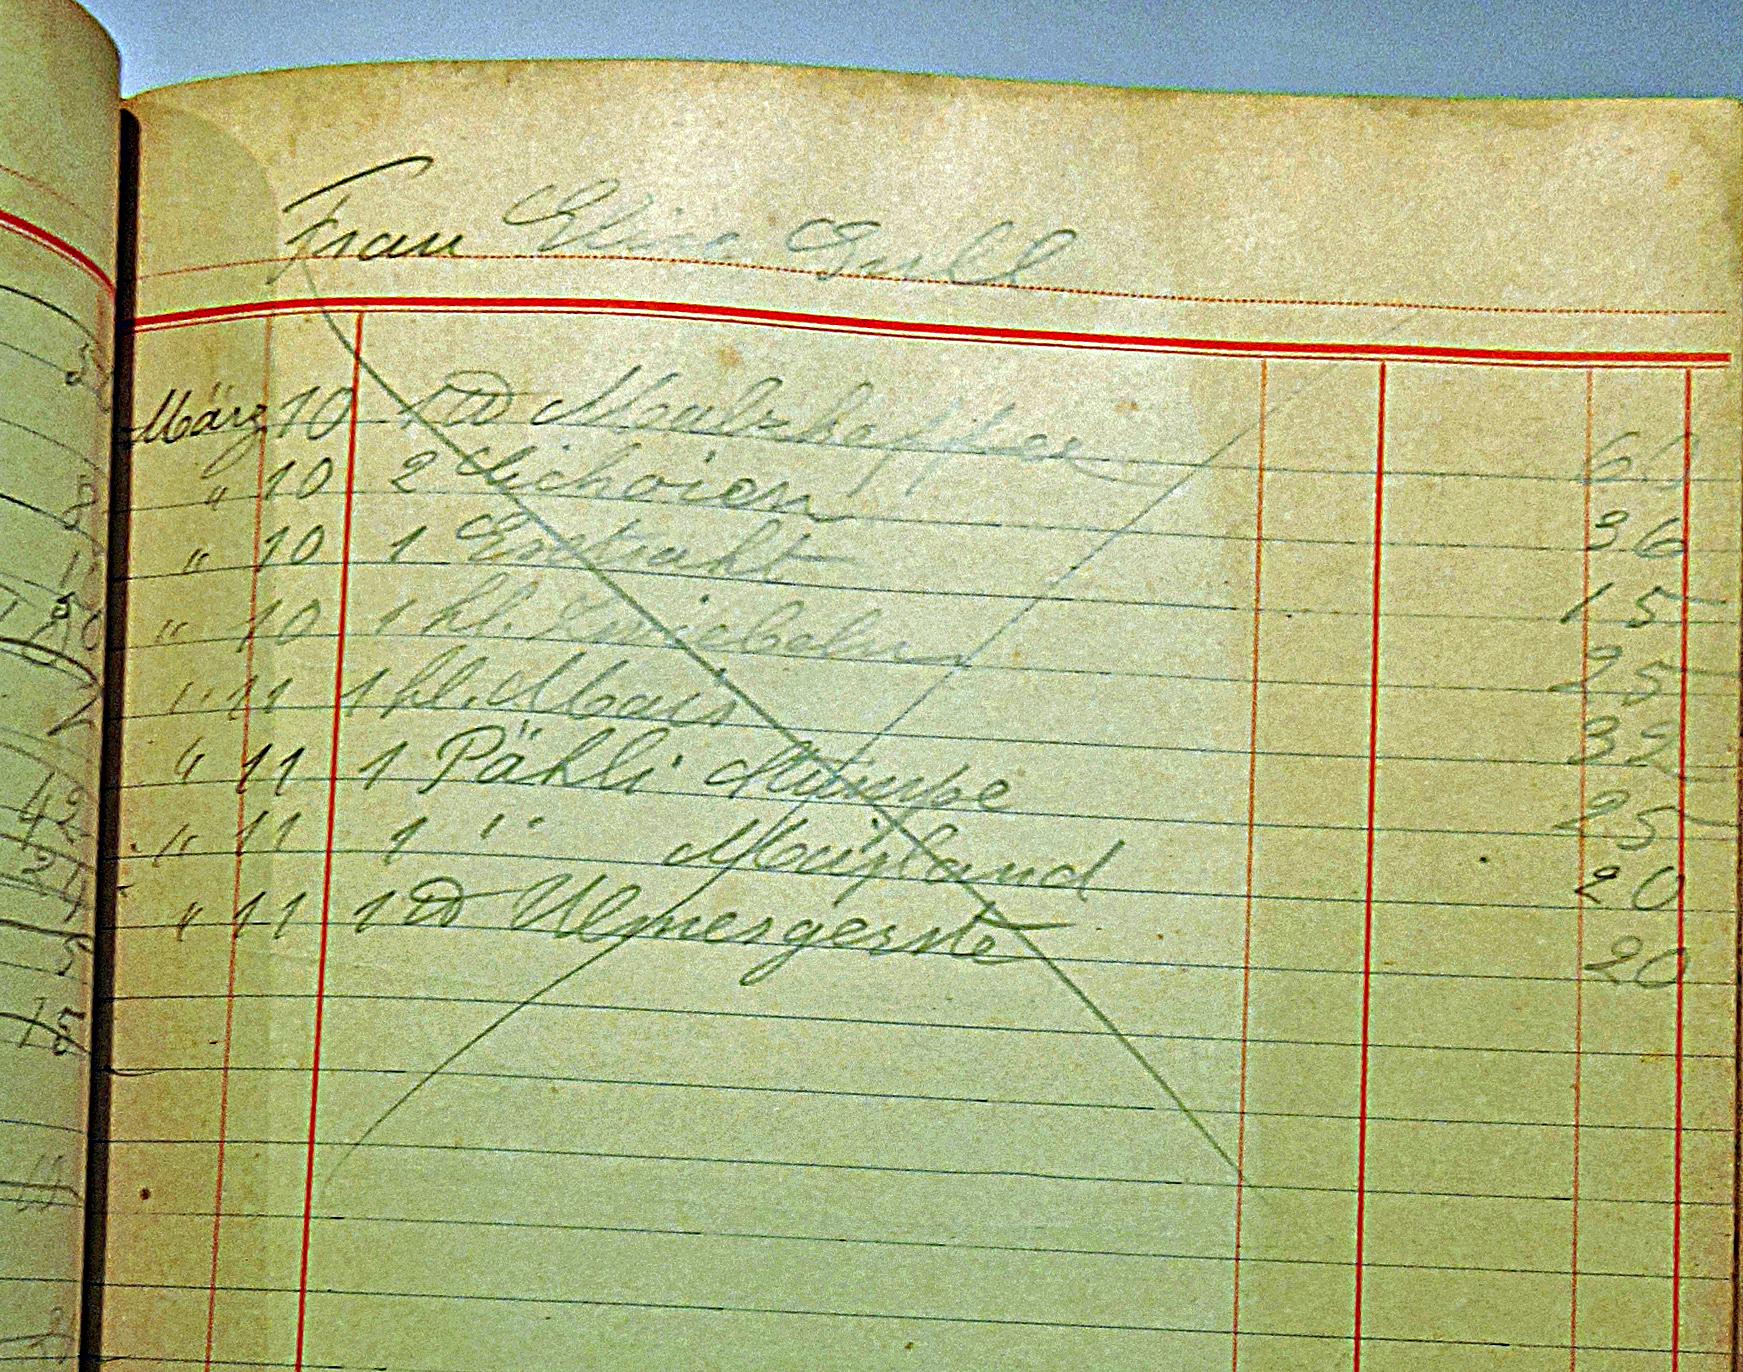 Frau Elise Gull
März 10 1 ℔ Malzkaffee 60
" 10 2 Cichorien 36
" 10 1 Extrakt 15
" 10 1 kl. Zwiebeln 25
" 11 1 kl. Mais 32
" 11 1 Päkli 25
" 11 1 " Mayland 20
" 11 1 ℔ Ulmergerste 20